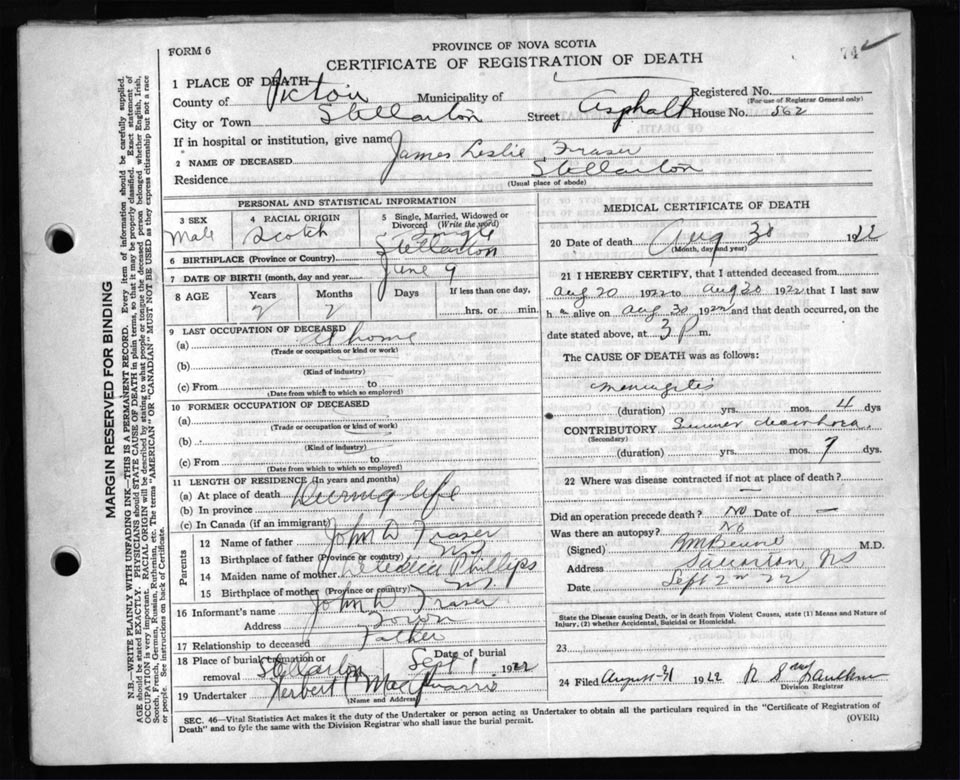 FORM 6
PROVINCE OF NOVA SCOTIA
74
CERTIFICATE OF REGISTRATION OF DEATH
1 PLACE OF DEATH
County of Pictou Municipality of Registered No.
(For use of Registrar General only)
City or Town Stellarton Street Asphalt House No. 562
If in hospital or institution, give name
2 NAME OF DECEASED James Leslie Fraser
Residence Stellarton
(Usual place of abode)
PERSONAL AND STATISTICAL INFORMATION
3 SEX 4 RACIAL ORIGIN 5 Single, Married, Widowed or Divorced (Write the word)
Male Scotch Single
6 BIRTHPLACE (Province or Country) Stellarton
7 DATE OF BIRTH (month, day and year) June 9
8 AGE Years Months Days If less than one day,
2 2 hrs. or min.
9 LAST OCCUPATION OF DECEASED
(a) at home
(Trade or occupation or kind or work)
(b)
(Kind of industry)
(c) From to
(Date from which to which so employed)
10 FORMER OCCUPATION OF DECEASED
(a)
(Trade or occupation or kind of work)
(b)
(Kind of industry)
(c) From to
(Date from which to which so employed)
11 LENGTH OF RESIDENCE (In years and months)
(a) At place of death During life
(b) In province
(c) In Canada (if an immigrant)
Parents
12 Name of father John D Fraser
13 Birthplace of father (Province or country) NS
14 Maiden name of mother Phillips
15 Birthplace of mother (Province or country) NS
16 Informant's name John D Fraser
Address Town
17 Relationship to deceased Father
18 Place of burial, cremation or removal Stellarton Date of burial Sept 1 1922
19 Undertaker Herbert
(Name and Address)
MEDICAL CERTIFICATE OF DEATH
20 Date of death Aug 30 1922
(Month, day and year)
21 I HEREBY CERTIFY, that I attended deceased from
Aug 20 1922 to Aug 30 1922 that I last saw
h alive on Aug 30 1922 and that death occurred, on the
date stated above, at 3 P m.
The CAUSE OF DEATH was as follows:
meningitis
(duration) yrs. mos. 4 dys
CONTRIBUTORY Summer diarrhoea
(Secondary)
(duration) yrs. mos. 7 dys.
22 Where was disease contracted if not at place of death?
Did an operation precede death? No Date of —
Was there an autopsy? No
(Signed) M.D.
Address Stellarton NS
Date Sept 2nd 22
State the Disease causing Death, or in death from Violent Causes, state (1) Means and Nature of Injury, (2) whether Accidental, Suicidal or Homicidal.
23
24 Filed August 31 1922
Division Registrar
SEC. 46—Vital Statistics Act makes it the duty of the Undertaker or person acting as Undertaker to obtain all the particulars required in the "Certificate of Registration of
Death" and to fyle the same with the Division Registrar who shall issue the burial permit.
(OVER)
MARGIN RESERVED FOR BINDING
N.B.—WRITE PLAINLY WITH UNFADING INK—THIS IS A PERMANENT RECORD. Every item of information should be carefully supplied.
AGE should be stated EXACTLY. PHYSICIANS should STATE CAUSE OF DEATH in plain terms, so that it may be properly classified. Exact statement of
OCCUPATION is very important. RACIAL ORIGIN will be described by stating to what people or tongue the deceased person belonged whether English, Irish,
Scotch, French, German, Russian, Ruthenian, etc. The terms "AMERICAN" or "CANADIAN" MUST NOT BE USED as they express citizenship but not a race
or people. See instructions on back of Certificate.